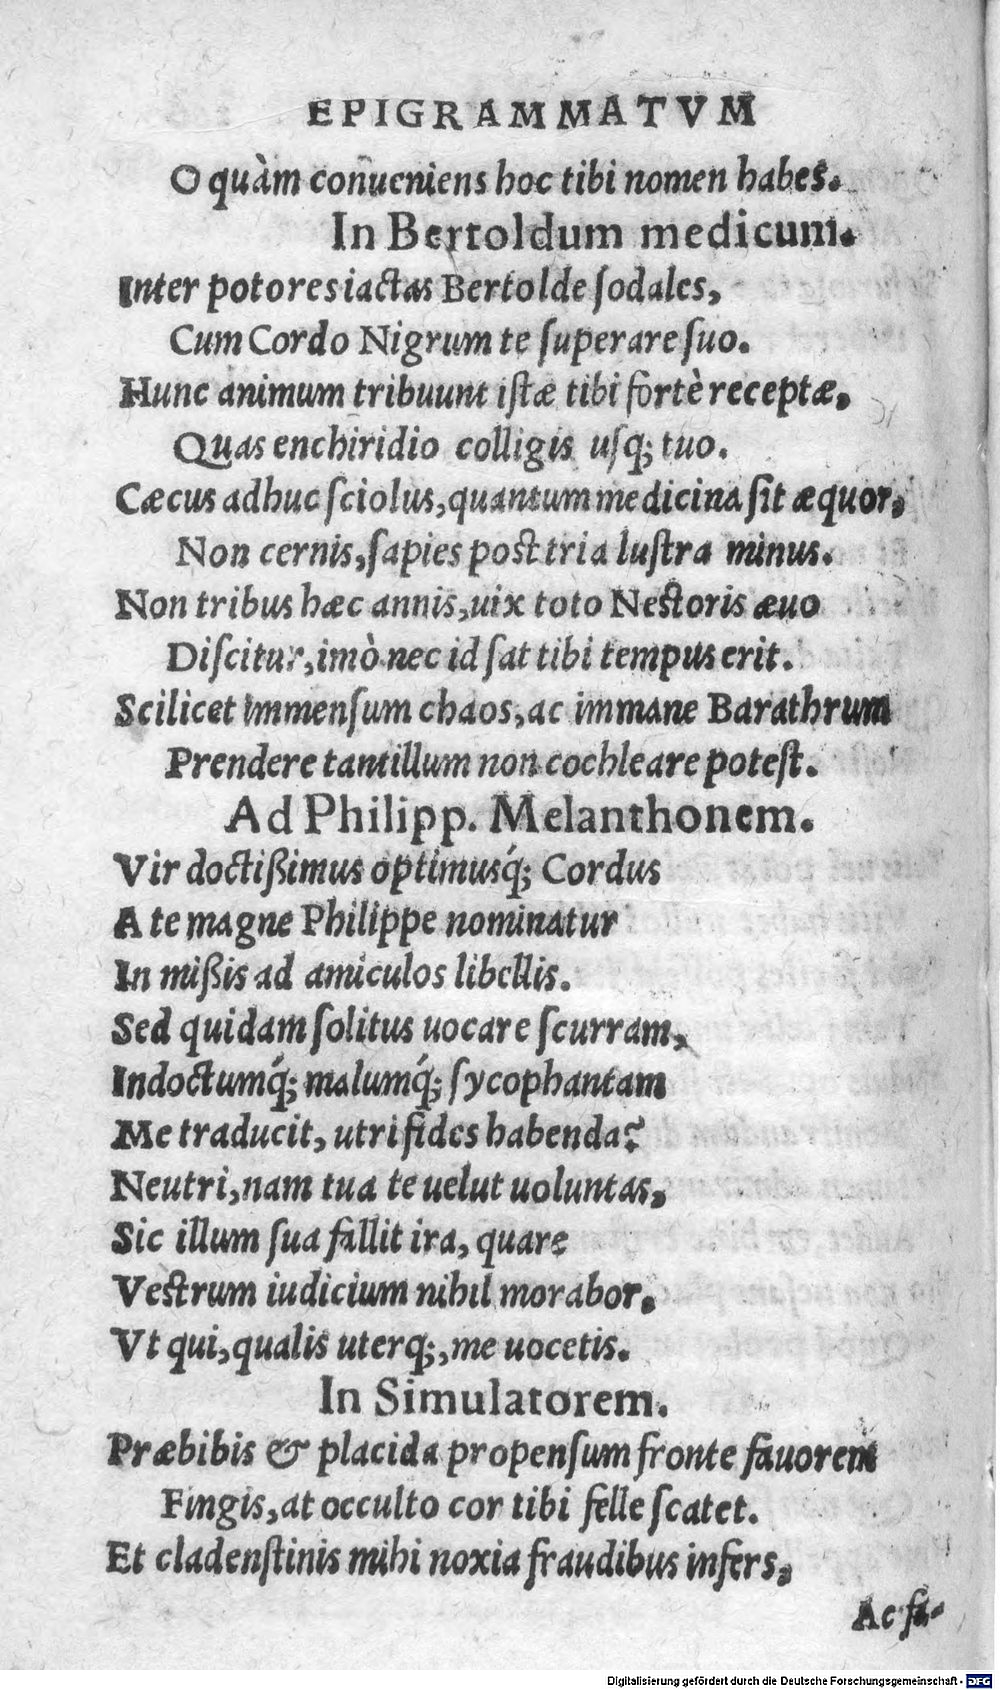 EPIGRAMMATVM
O quàm conueniens hoc tibi nomen habes.
In Bertoldum medicum.
Inter potores iactas Bertolde ſodales,
Cum Cordo Nigrum te ſuperare ſuo.
Hunc animum tribuunt iſtæ tibi fortè receptæ,
Quas enchiridio colligis uſq; tuo.
Cæcus adhuc ſciolus, quantum medicina ſit æquor,
Non cernis, ſapies post tria luſtra minus.
Non tribus hæc annis, uix toto Nestoris æuo
Diſcitur, imò nec id ſat tibi tempus erit.
Scilicet immenſum chaos, ac immane Barathrum
Prendere tantillum non cochleare poteſt.
Ad Philipp. Melanthonem.
Vir doctißimus optimusq́; Cordus
A te magne Philippe nominatur
In mißis ad amiculos libellis.
Sed quidam ſolitus uocare ſcurram,
Indoctumq́; malumq́; ſycophantam
Me traducit, utri fides habenda?
Neutri, nam tua te uelut uoluntas,
Sic illum ſua fallit ira, quare
Vestrum iudicium nihil morabor.
Vt qui, qualis uterq;, me uocetis.
In Simulatorem.
Præbibis & placida propenſum fronte fauorem
Fingis, at occulto cor tibi felle ſcatet.
Et cladenſtinis mihi noxia fraudibus infers,
Ac ſi-
Digitalisierung gefördert durch die Deutsche Forschungsgemeinschaft - DFG